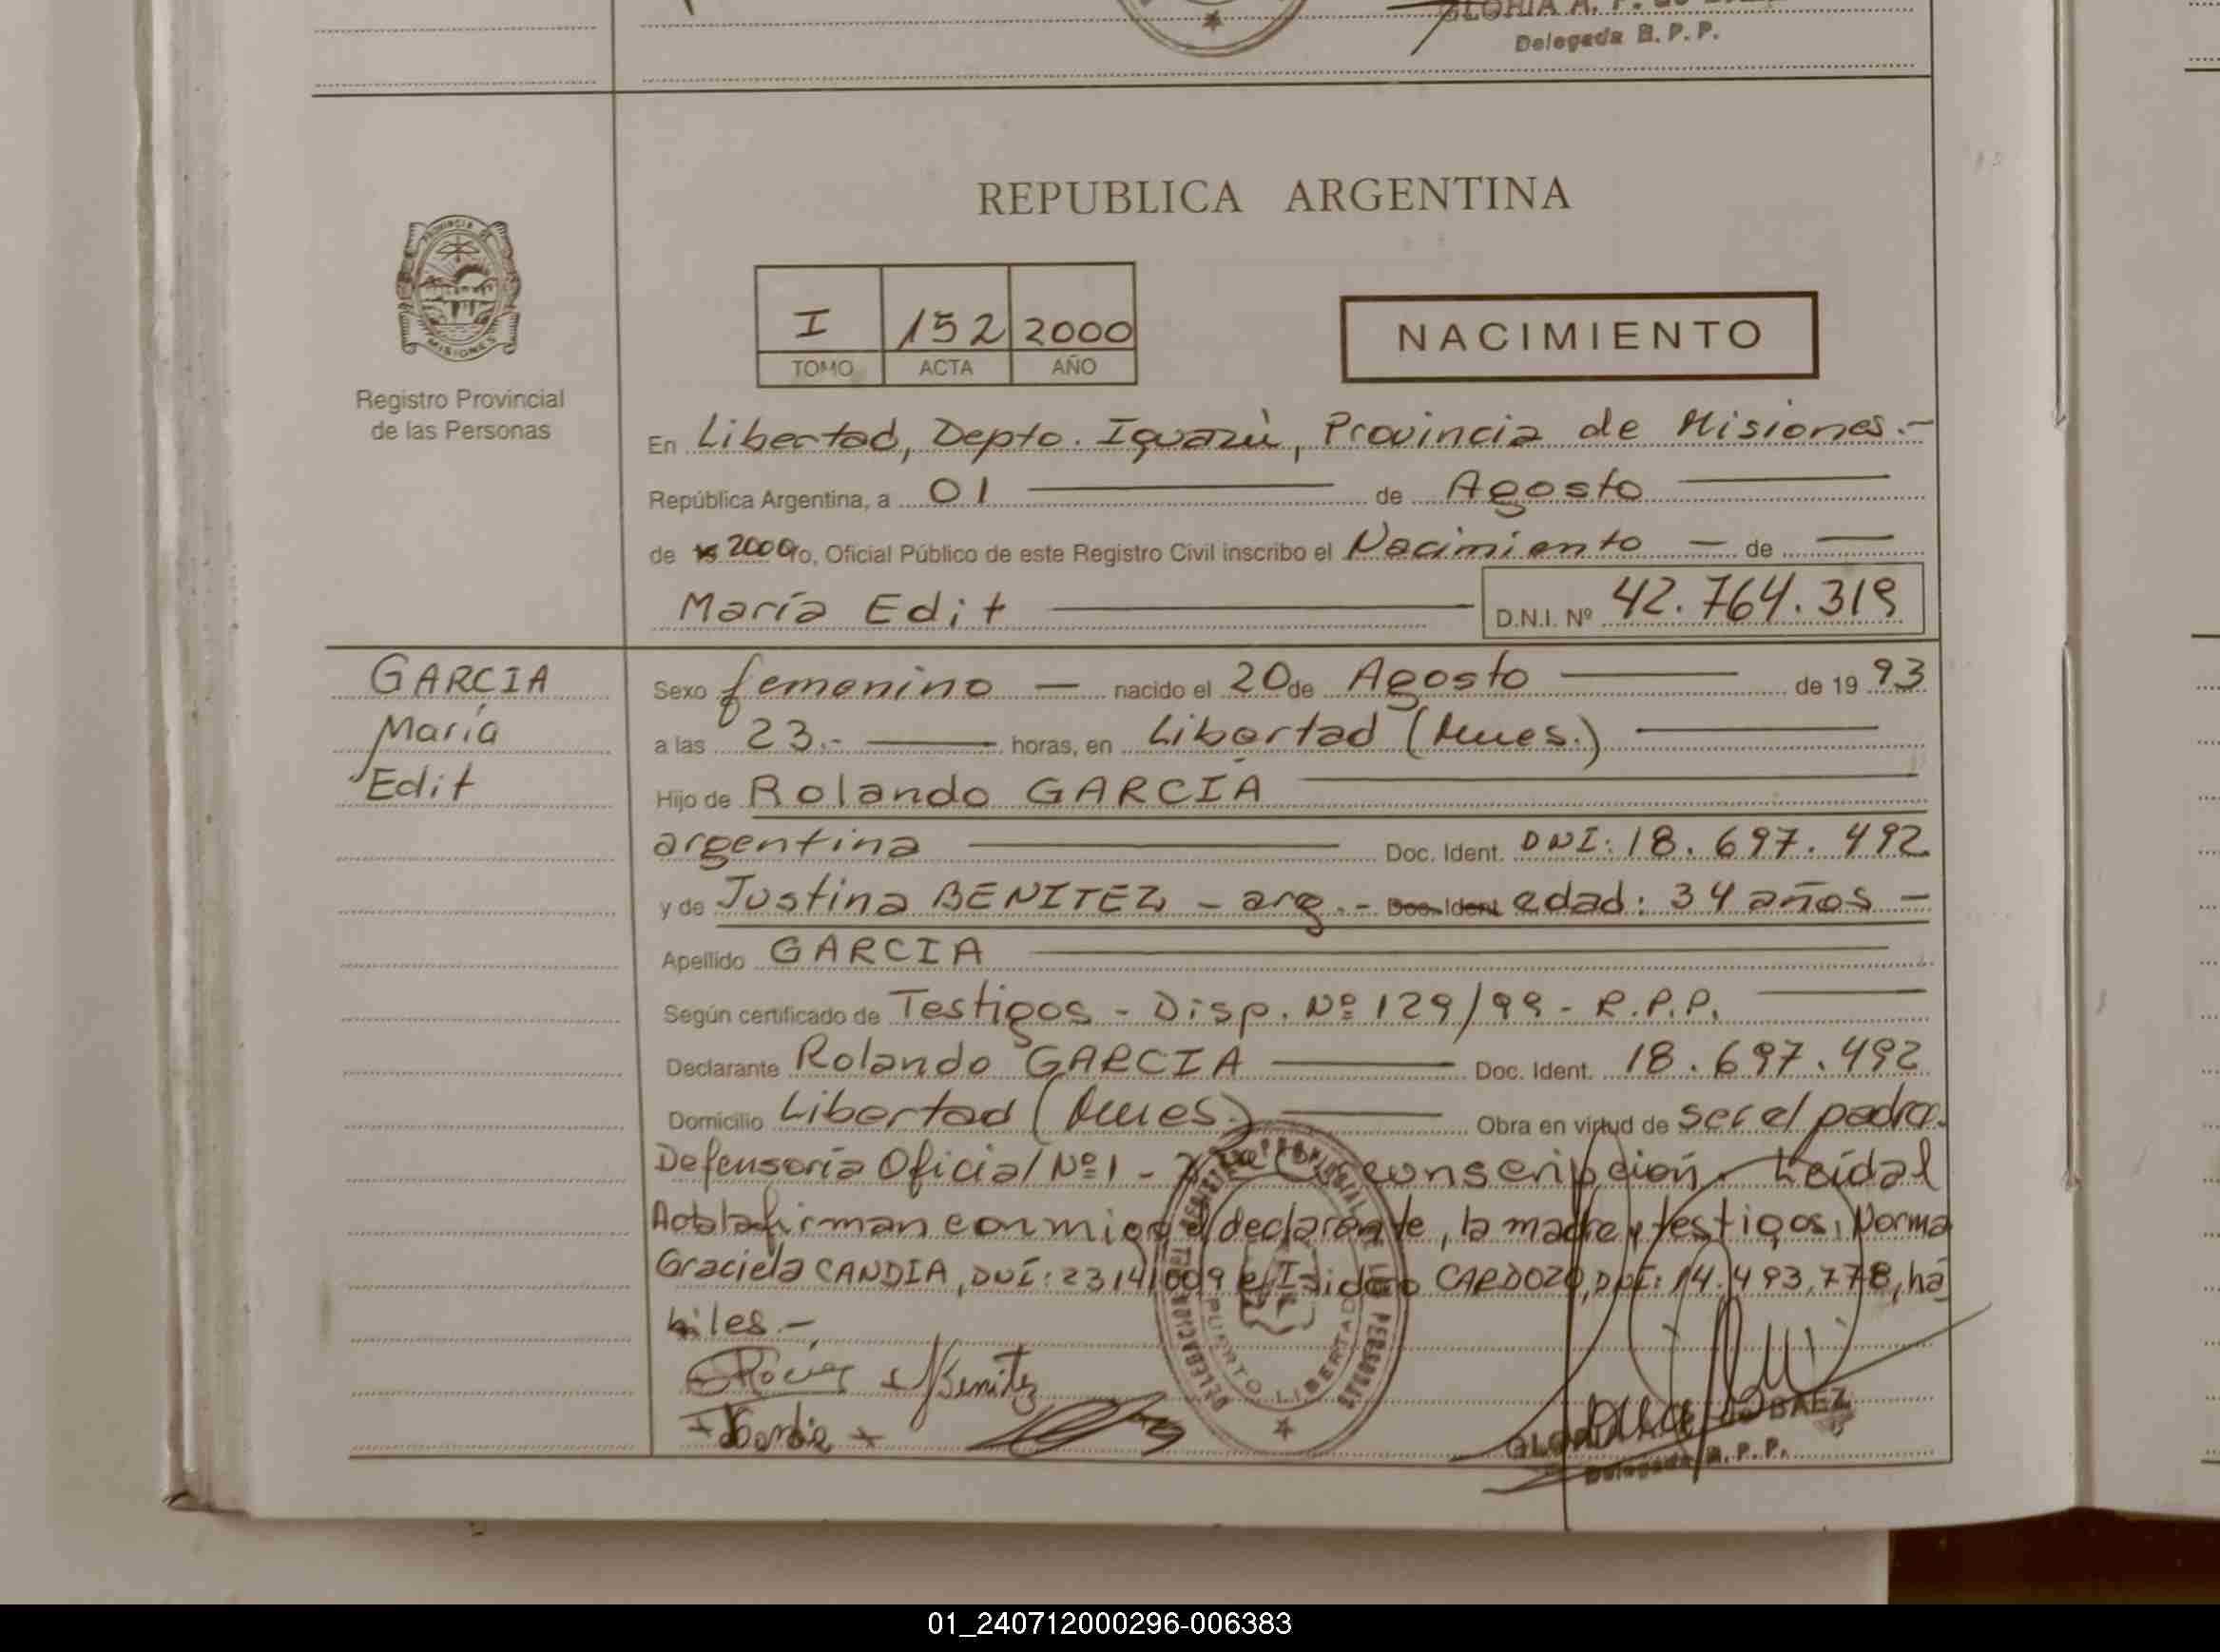 Delegada R.P.P.
REPUBLICA ARGENTINA
PROVINCIA DE
MISIONES
Registro Provincial
de las Personas
I 152 2000
TOMO ACTA AÑO
NACIMIENTO
En Libertad, Depto. Iguazú, Provincia de Misiones.-
República Argentina, a 01 de Agosto
de 2000 Yo, Oficial Público de este Registro Civil inscribo el Nacimiento - de -
María Edit D.N.I. Nº 42.764.319
GARCIA
María
Edit
Sexo femenino - nacido el 20 de Agosto de 19 93
a las 23.- horas, en Libertad (Mnes.)
Hijo de Rolando GARCÍA
argentina Doc. Ident. DNI: 18.697.492
y de Justina BENITEZ - arg.- Doc. Ident edad: 34 años -
Apellido GARCIA
Según certificado de Testigos - Disp. Nº 129/99 - R.P.P.
Declarante Rolando GARCIA Doc. Ident. 18.697.492
Domicilio Libertad (Mnes.) Obra en virtud de ser el padre.
Defensoría Oficial Nº1 - Circunscripción. Leída l
Acta la firman conmigo el declarante, la madre y testigos: Norma
Graciela CANDIA, DNI: 23141009 e Isidoro CARDOZO, DNI: 14.493.778, há
biles.-
Benitez
DELEGACION PUERTO LIBERTAD
de BAEZ
Delegada R.P.P.
01_240712000296-006383